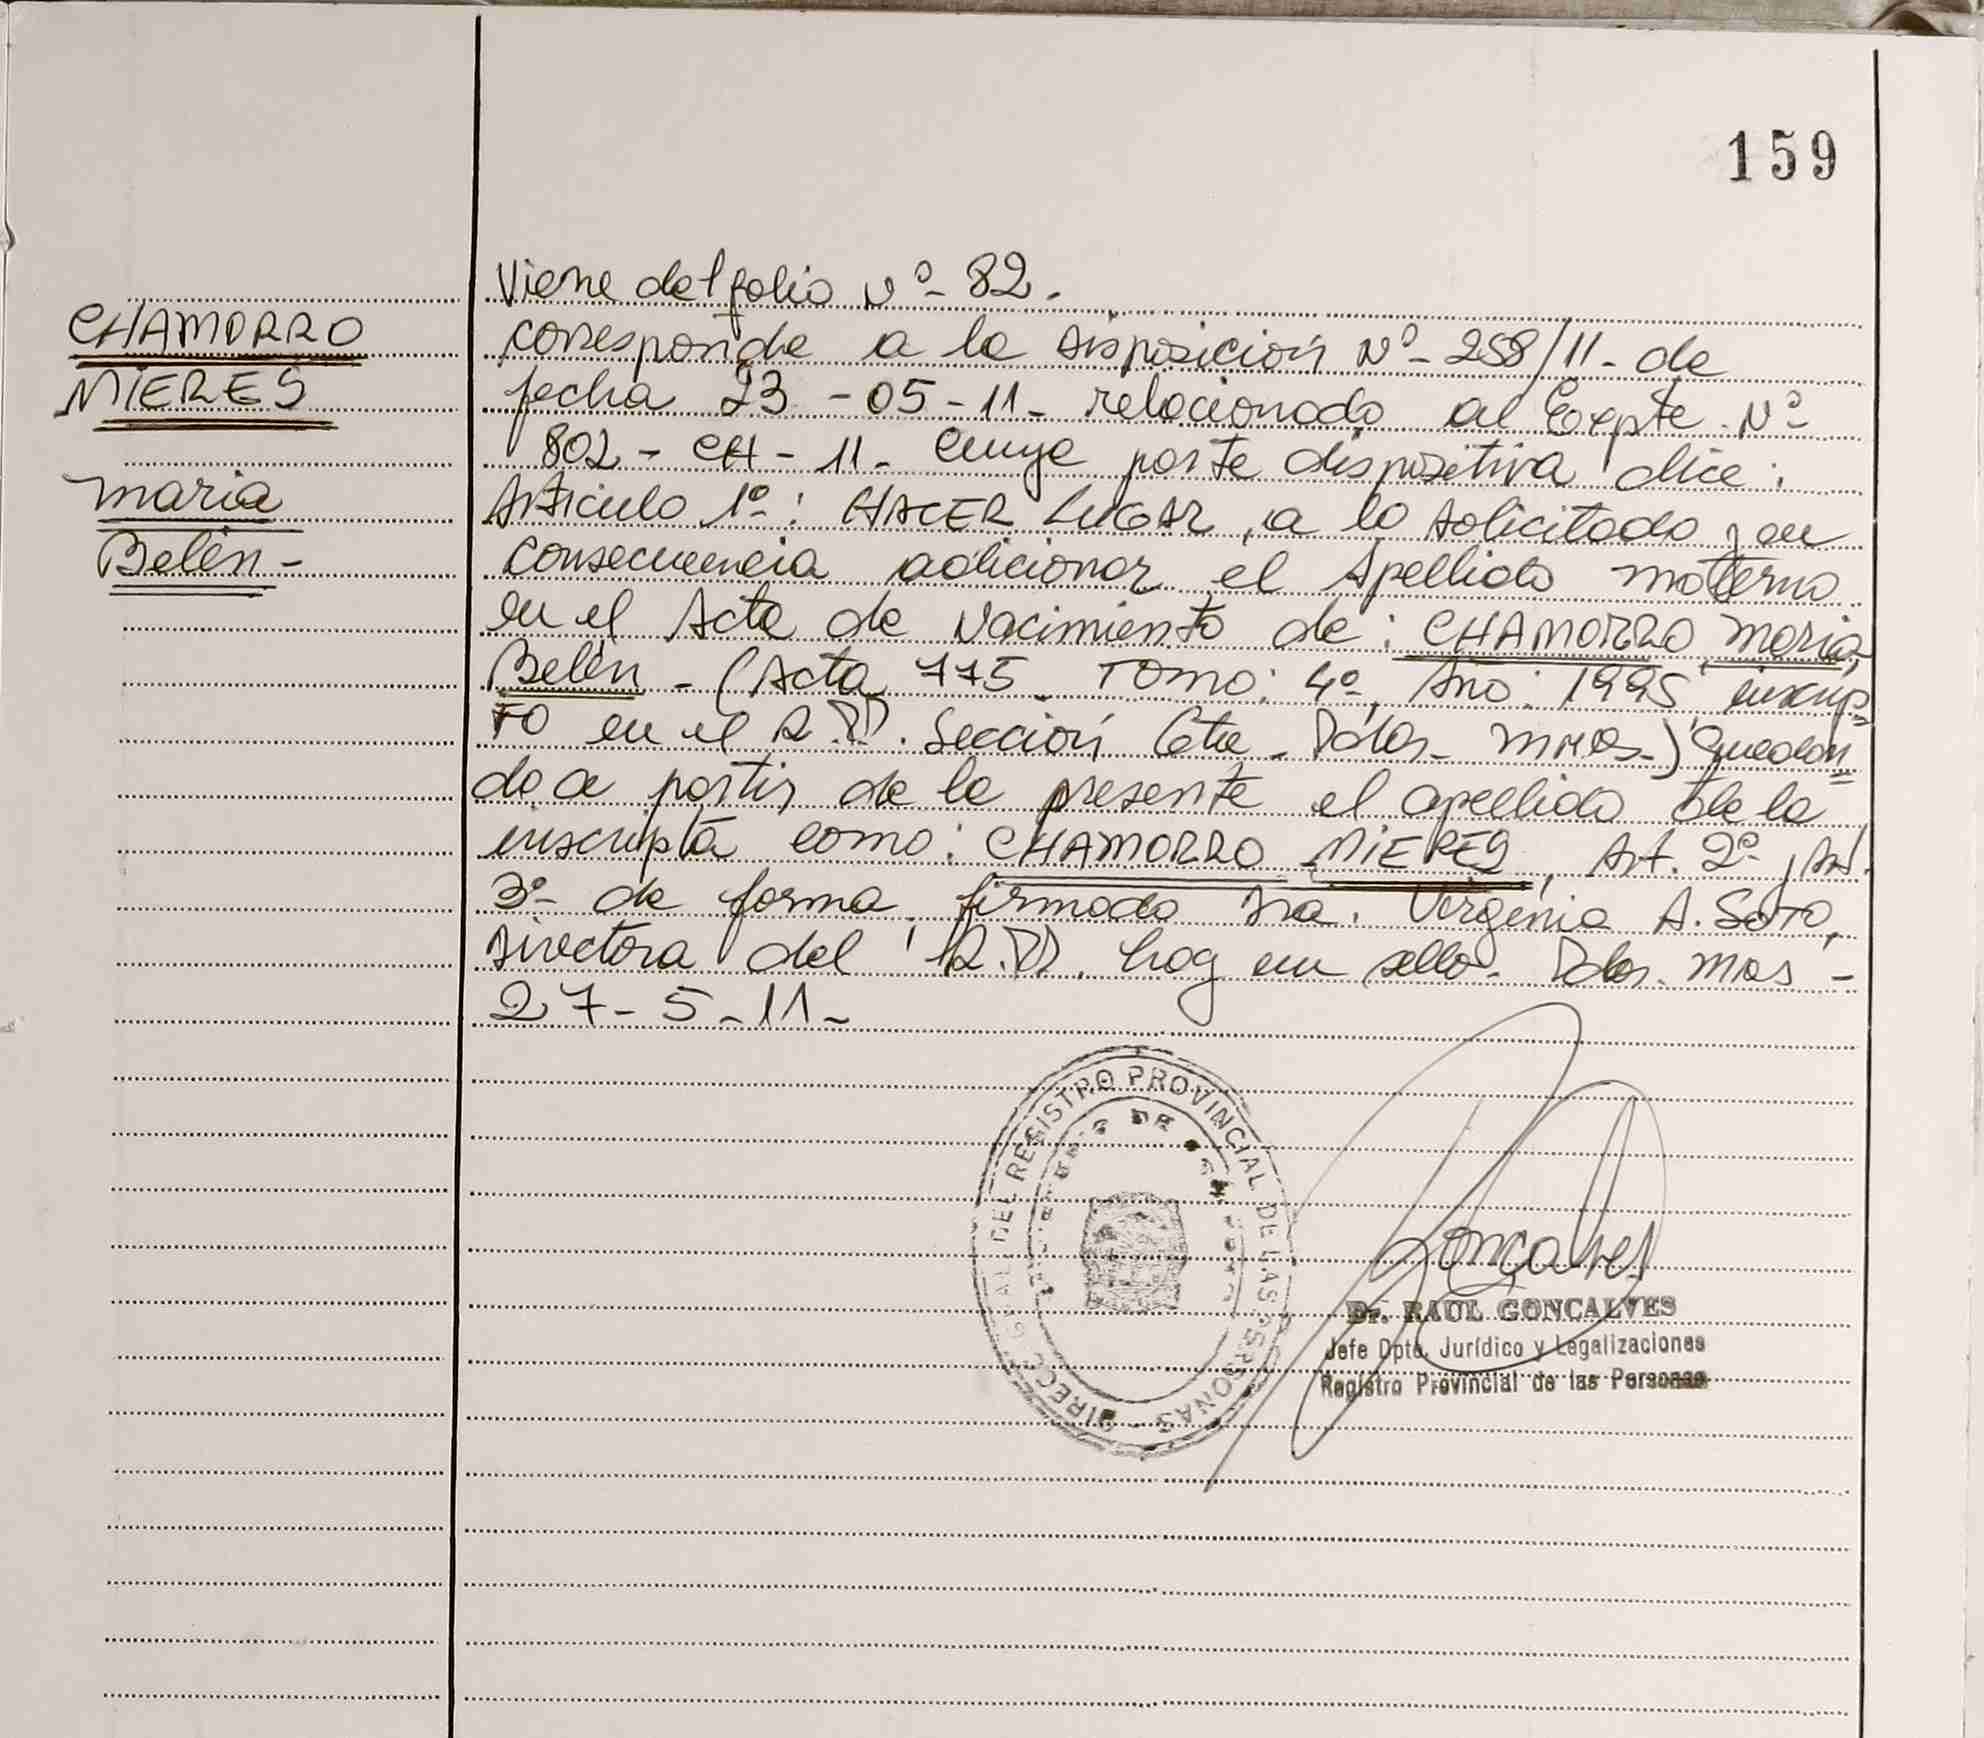 159
CHAMORRO
MIERES
Maria
Belén -
Viene del folio Nº- 82 -
corresponde a la disposición Nº- 258/11- de
fecha 23 - 05 - 11 - relacionado al Expte. Nº
802 - CH - 11 - cuya parte dispositiva dice :
Articulo 1º : HACER LUGAR, a lo solicitado y en
consecuencia adicionar el Apellido materno
en el Acta de Nacimiento de : CHAMORRO, Maria
Belén - (Acta 775 - Tomo : 4º, Año : 1995 inscrip=
to en el R.P.P. Sección Ctro - Pdas - Mnes -) quedan=
do a partir de la presente el apellido de la
inscripta como : CHAMORRO MIERES, Art. 2º, Art.
3º- de forma, firmado Sra. Virginia A. SOTO,
Directora del R.P.P. hay un sello - Pdas. Mnes -
27 - 5 - 11 -
DEL REGISTRO PROVINCIAL DE LAS PERSONAS
Goncalves
Dr. RAUL GONCALVES
Jefe Dpto. Jurídico y Legalizaciones
Registro Provincial de las Personas